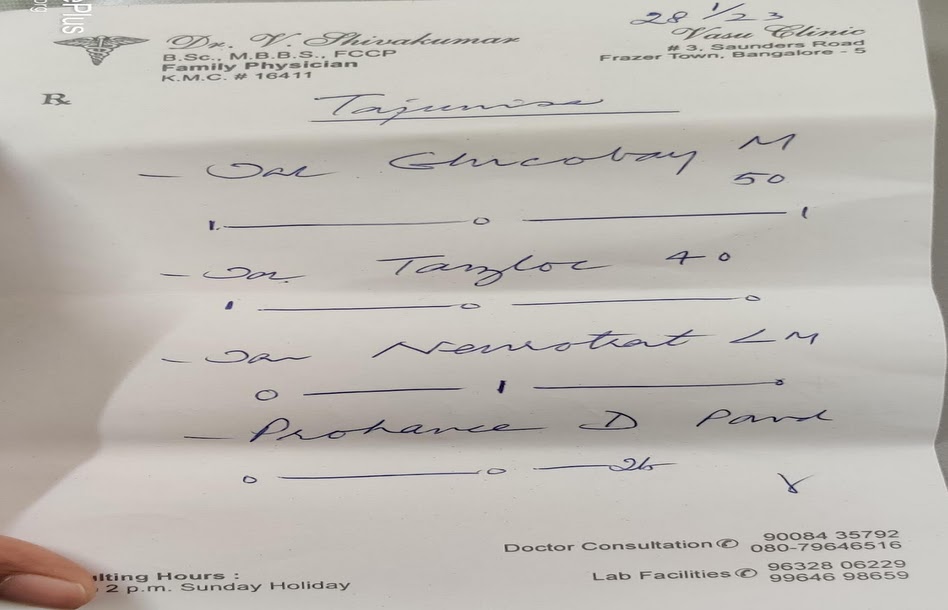 28 1/23
Dr. V. Shivakumar
B.Sc., M.B.B.S., FCCP
Family Physician
K.M.C. # 16411
Vasu Clinic
# 3, Saunders Road
Frazer Town, Bangalore - 5
Rx
Tajunisa
- Tab Glucobay M
50
1 — 0 — 1
- Tab Tazloc 40
1 — 0 — 0
- Tab Neurotrat LM
0 — 1 — 0
- Prohance D Powd
0 — 0 —
Doctor Consultation ✆ 90084 35792
080-79646516
Lab Facilities ✆ 96328 06229
99646 98659
lting Hours :
2 p.m. Sunday Holiday